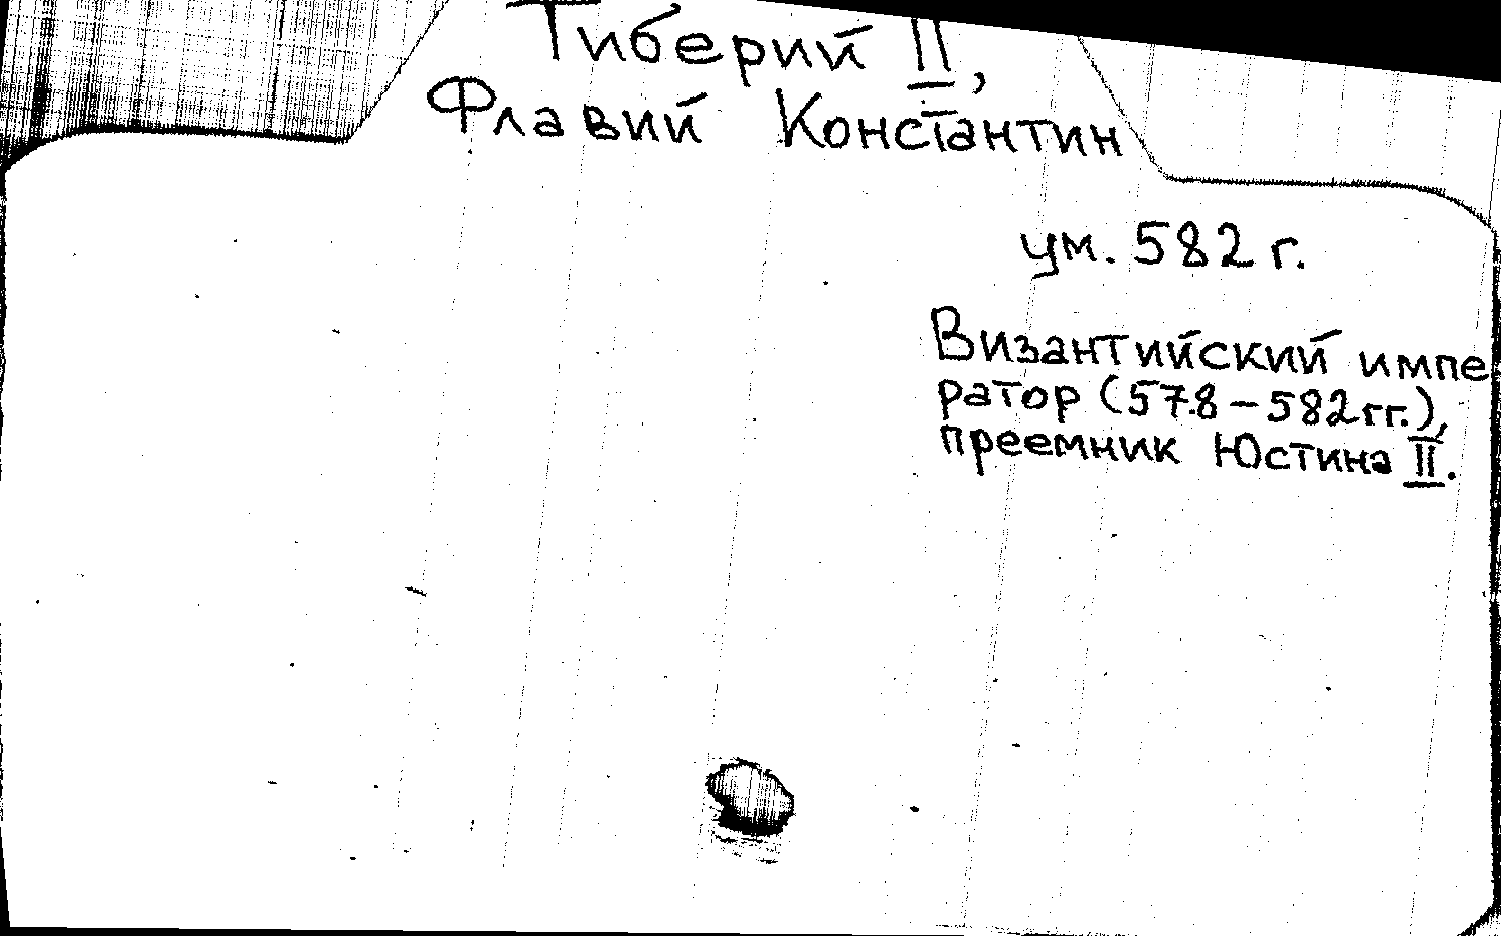 Тиберий II,
Флавий Константин
ум. 582 г.
Византийский импе
ратор (578 – 582 гг.),
преемник Юстина II.